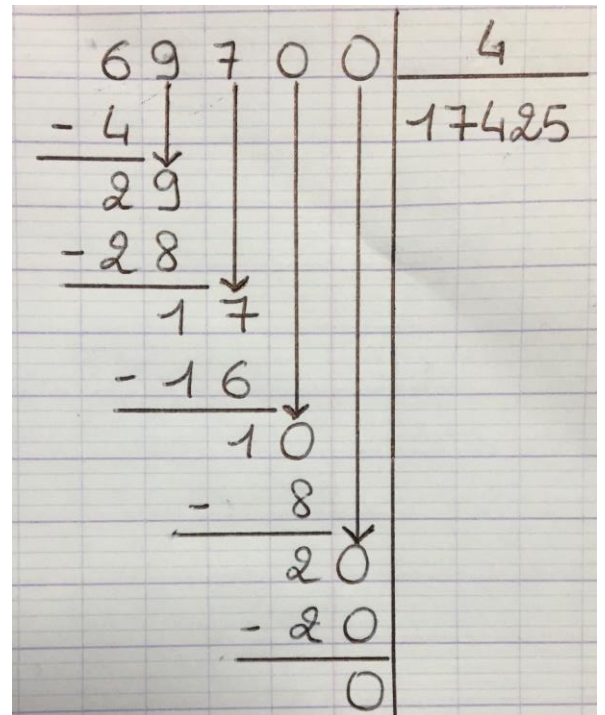 69700 4
- 4 17425
29
- 28
17
- 16
10
- 8
20
- 20
0